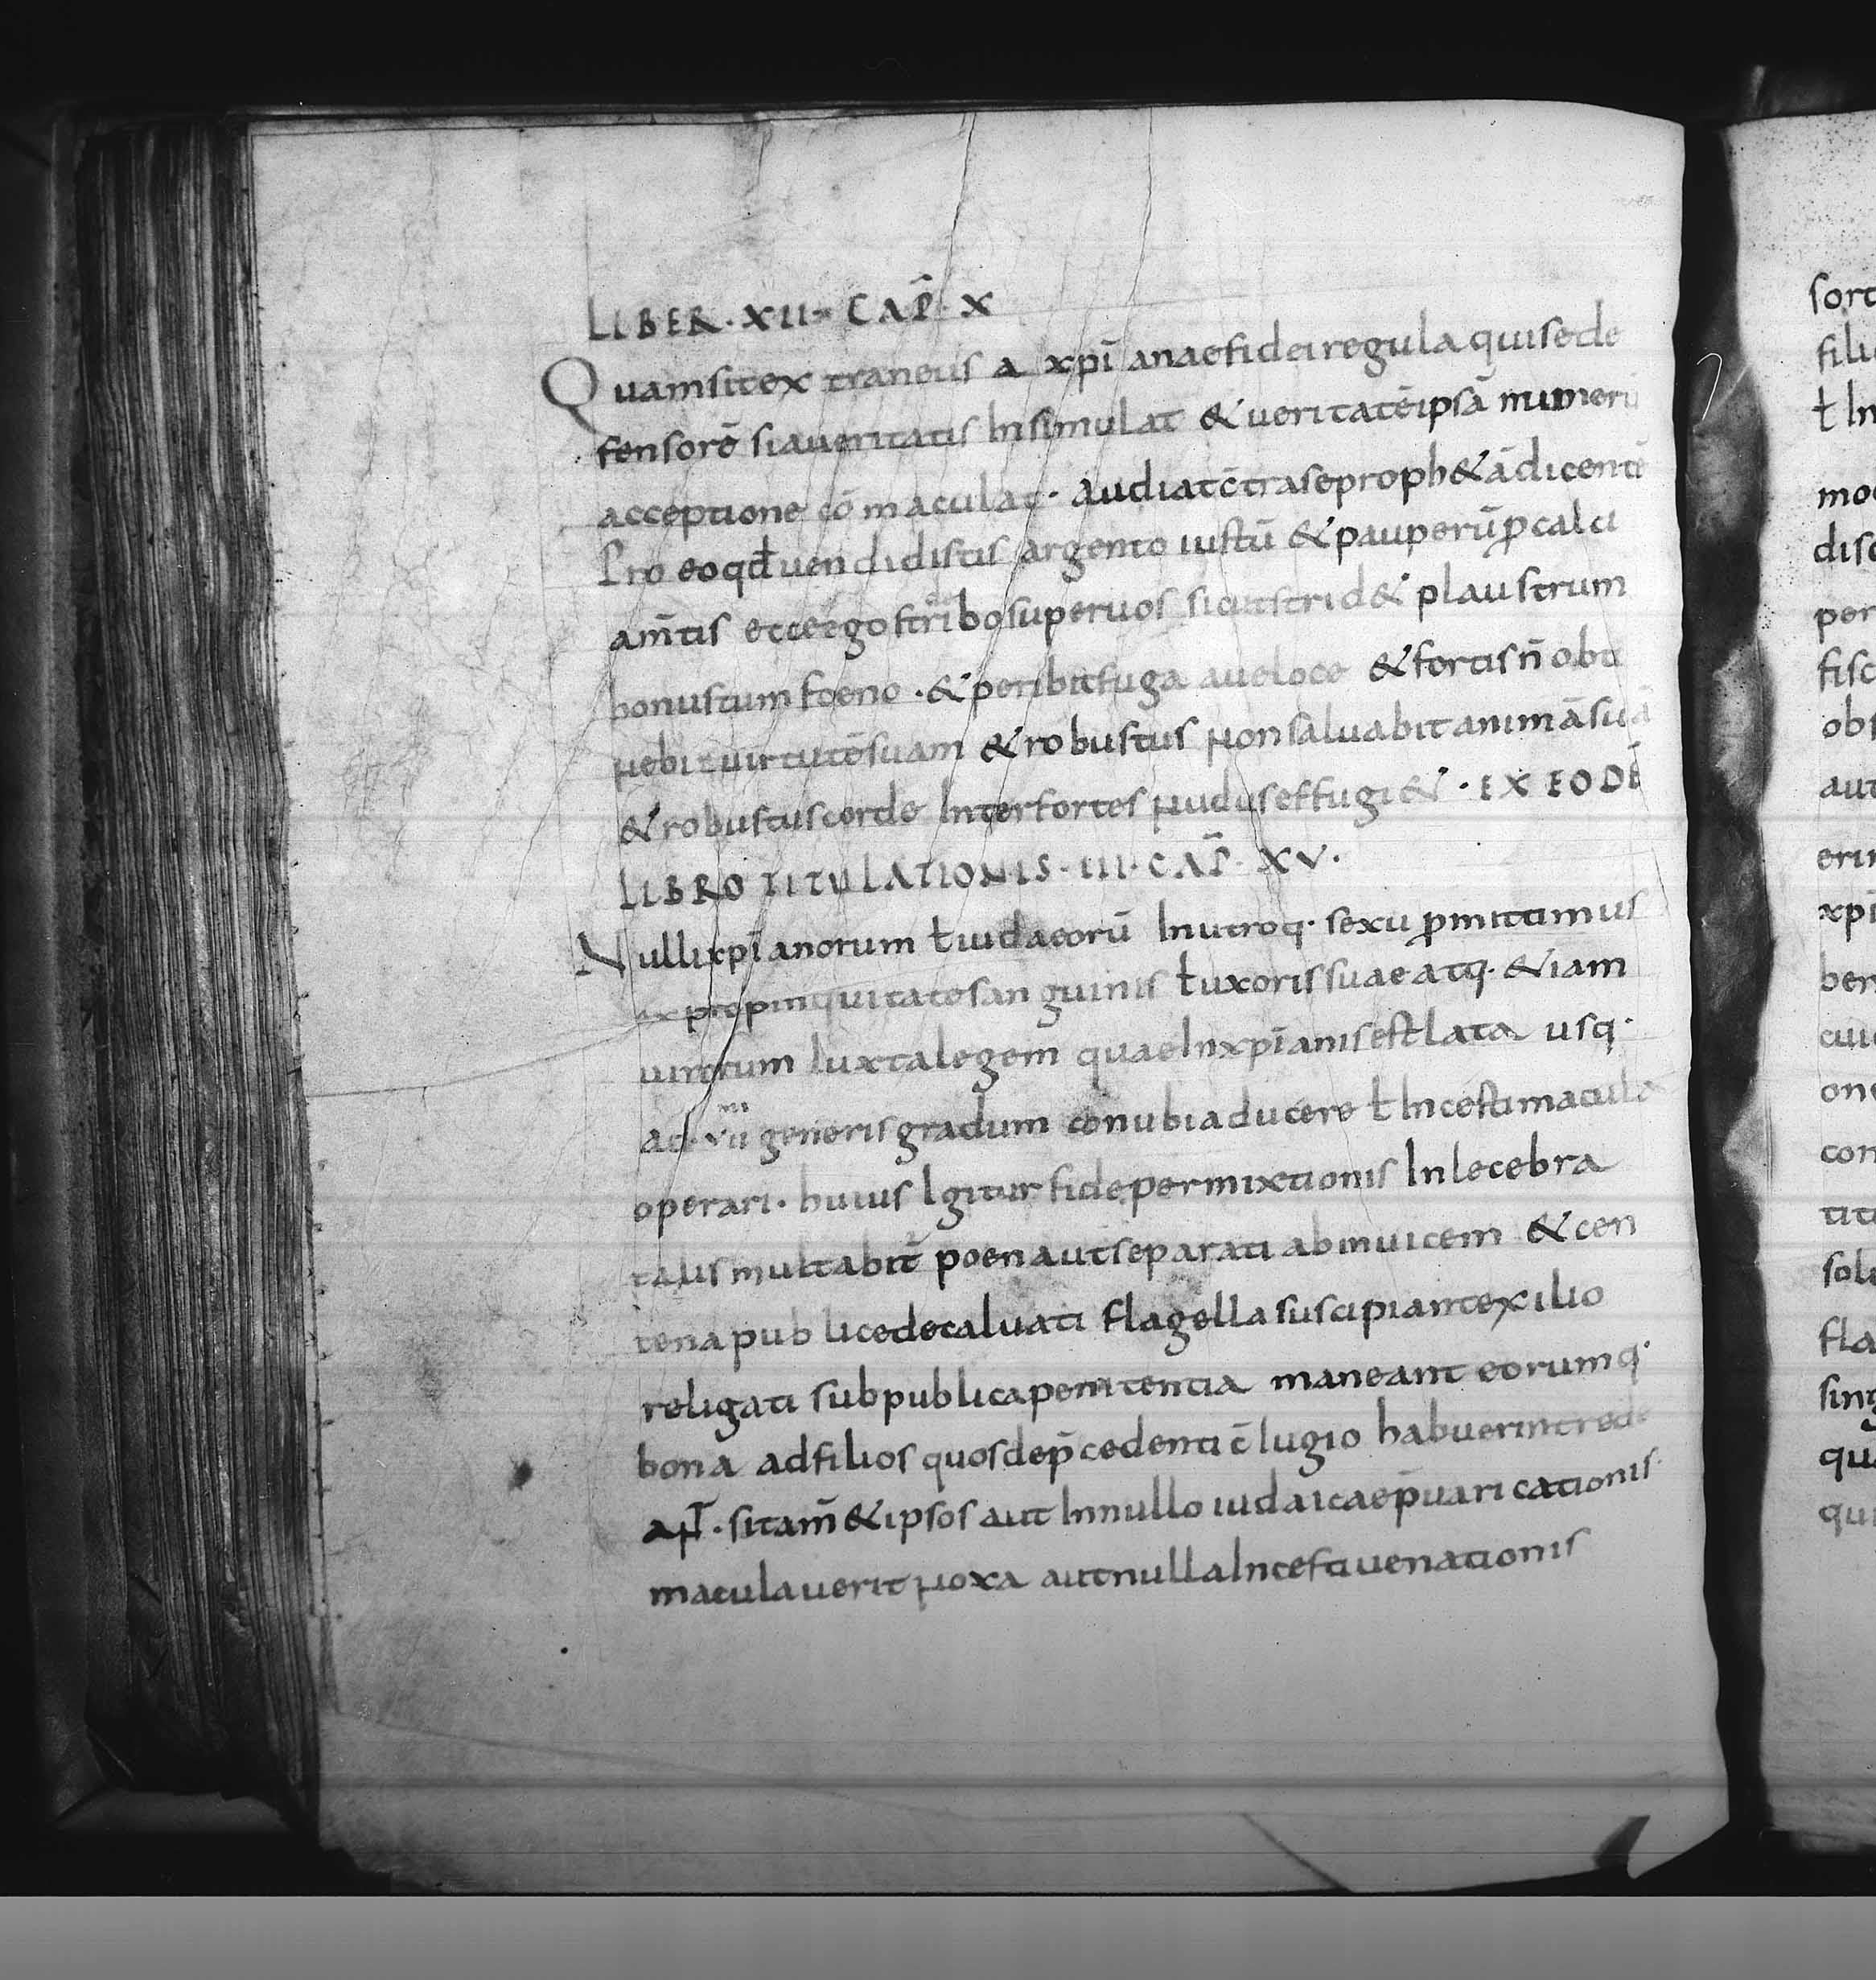 LIBER · XII · CAP̄ · X
Quam sit extraneus a xpī anae fidei regula qui se de
fensorē sia ueritatis Insimulat & ueritatē ipsā munerū
acceptione cōmaculat · audiat c̄tra se proph&ā dicentē
Pro eo qđ uendidistis argento iustū & pauperū ꝓ calci
am̄tis ecce ego stridebo super uos sicut strid& plaustrum
honustum foeno · & peribit fuga a ueloce & fortis n̄ obti
nebit uirtutē suam & robustus non saluabit animā suā
& robustus corde Inter fortes nudus effugi& · EX EODĒ
LIBRO TITULATIONIS · III · CAP̄ · XV ·
Nulli xpīanorum ł iudaeorū In utroq· sexu ꝑmittimus
ex propinquitate sanguinis ł uxoris suae atq· &iam
uirorum Iuxta legem quae In xpīanis est lata usq·
ad · VII mi generis gradum conubia ducere ł Incesti macula
operari · huius Igitur fide permixtionis Inlecebra
talis multabit̄ poena ut separati ab inuicem & cen
tena publice decaluati flagella suscipiant exilio
religati sub publica penitentia maneant eorumq·
bona ad filios quos de p̄cedenti c̄Iugio habuerint red
aNT · si tam̄ & ipsos aut In nullo iudaicae p̄uaricationis
maculauerit noxa aut nulla Incesti uenationis
sort
fili
ł In
mo
disc
per
fisc
obs
aut
erin
xpi
ber
cui
one
con
titu
solu
fla
sing
qua
qui